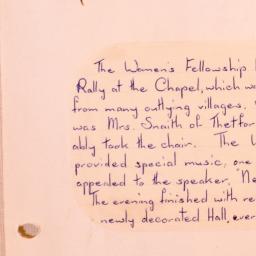 The Women's Fellowship
Rally at the Chapel, which w
from many outlying villages.
was Mrs. Snaith of Thetfor
ably took the chair. The
provided special music, one
appealed to the speaker, "Ne
The evening finished with re
newly decorated Hall, ever